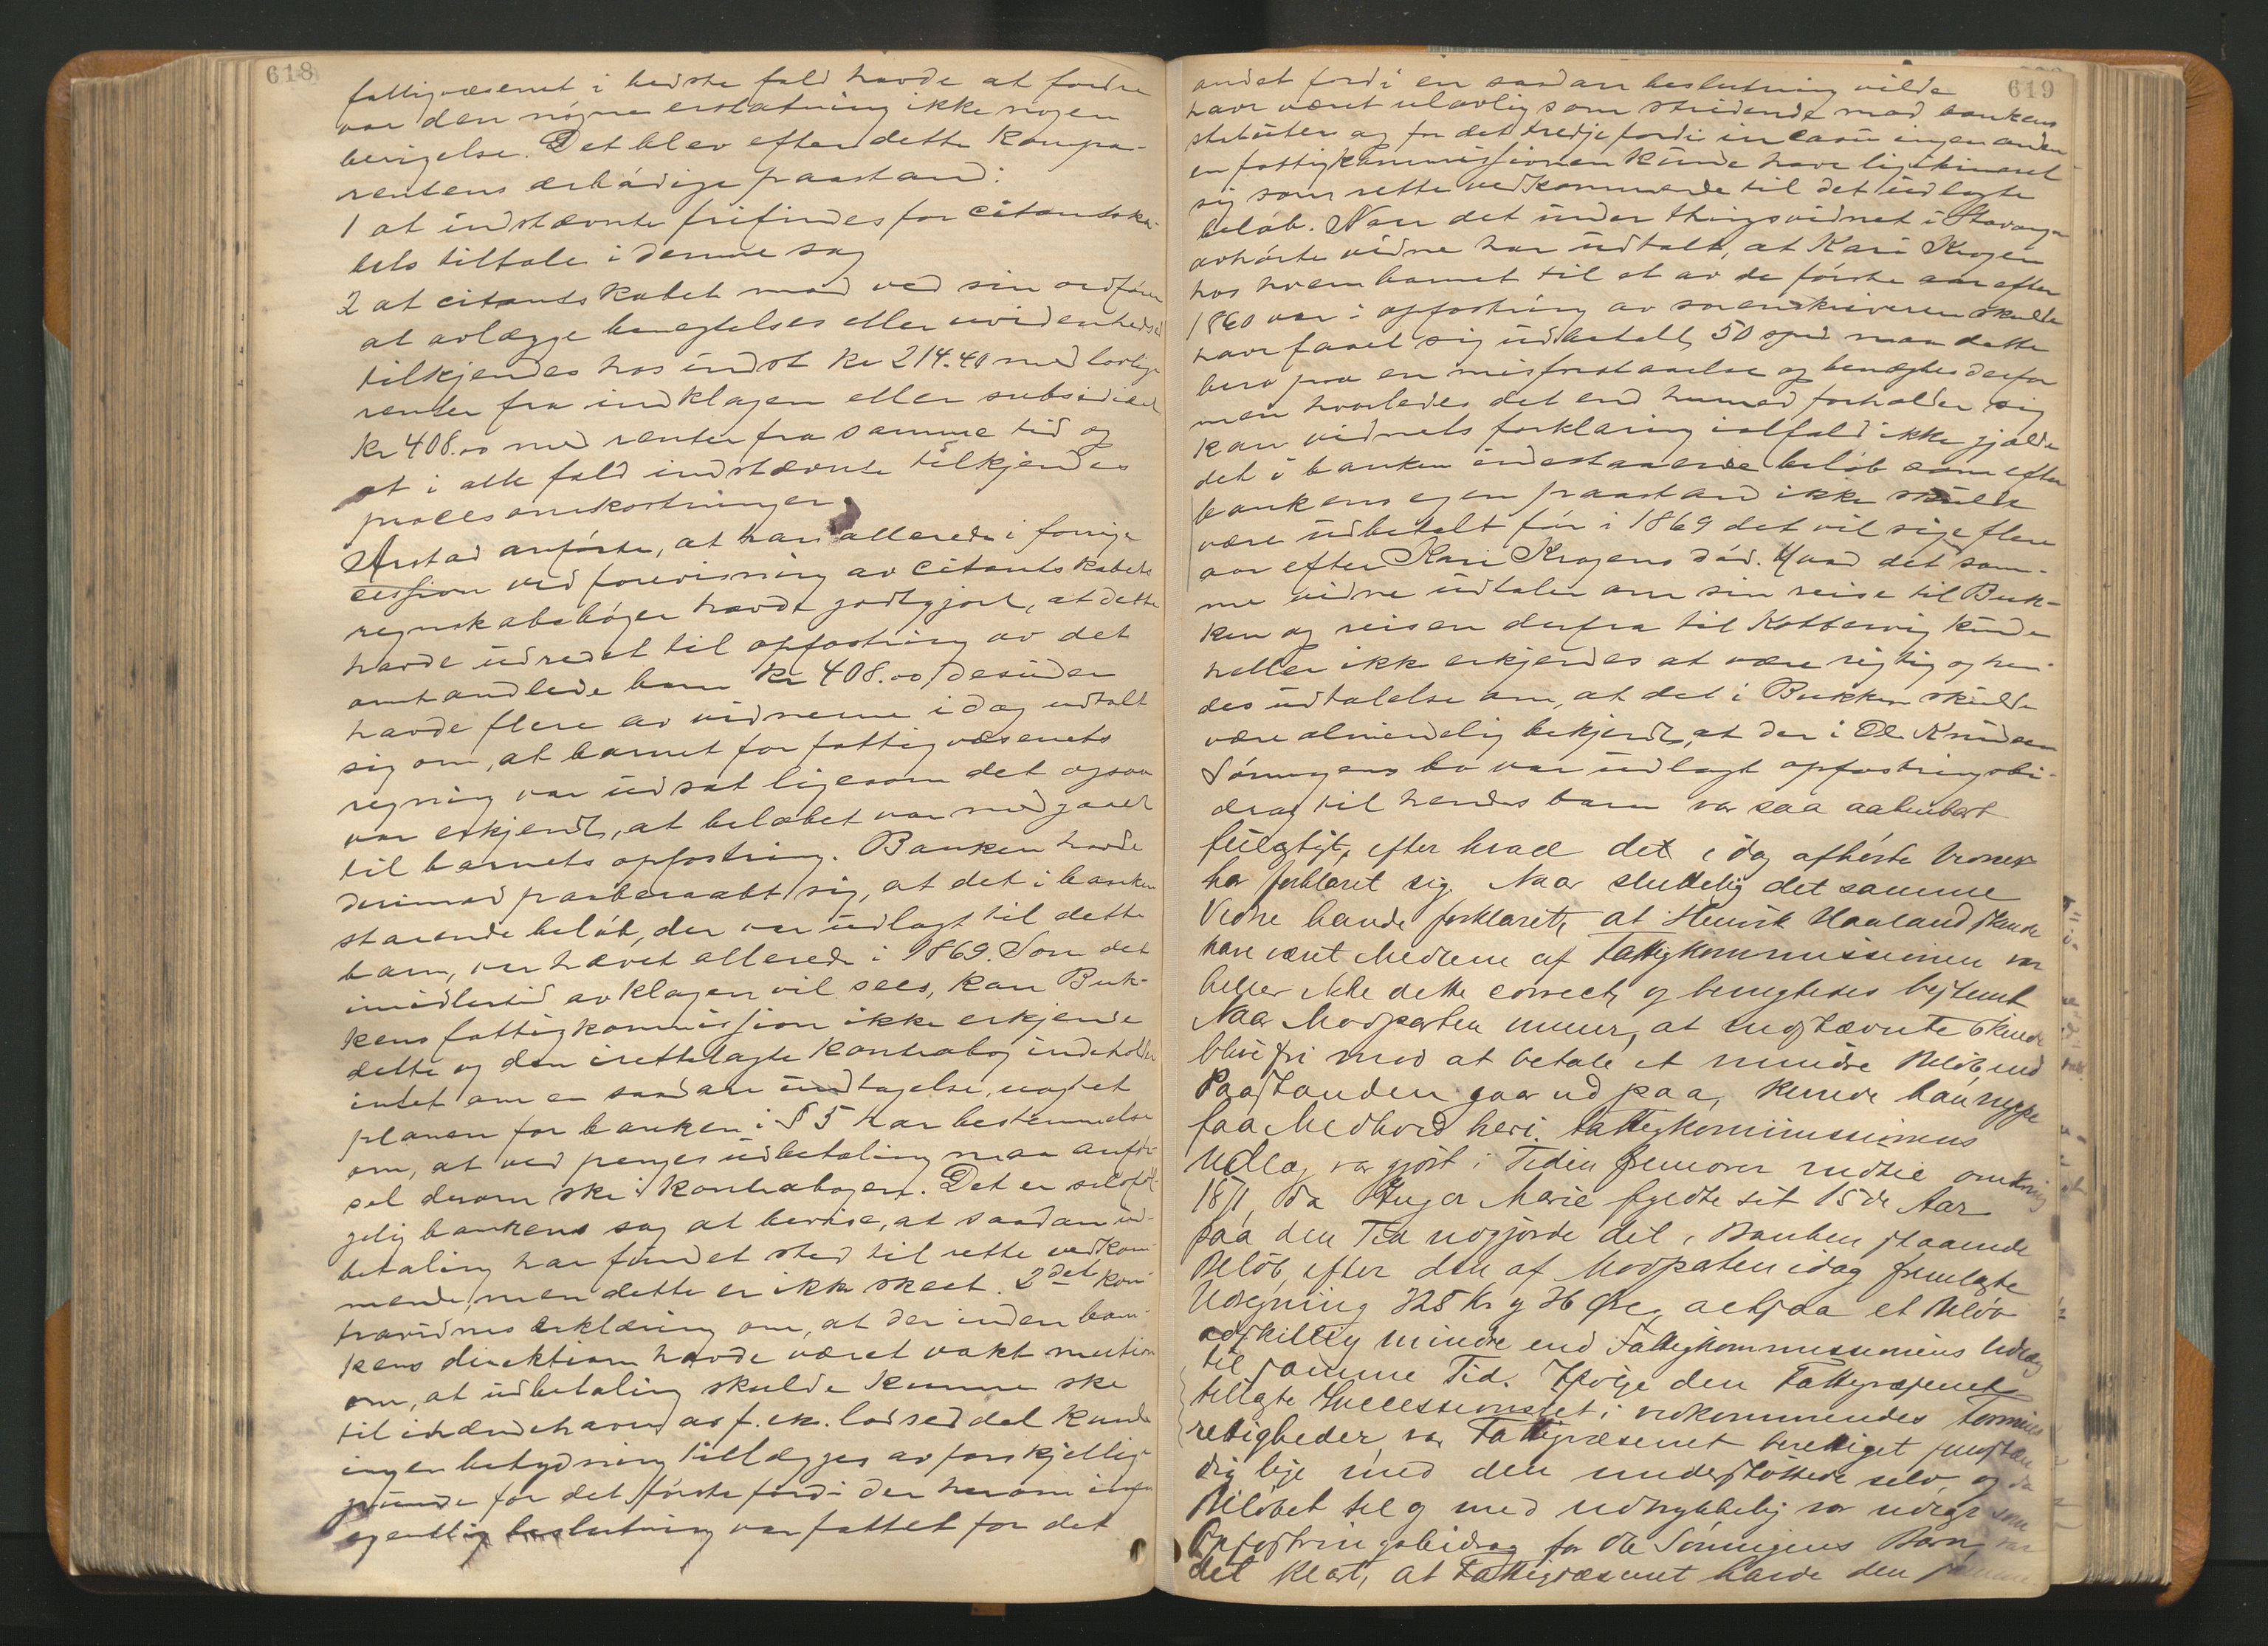 618
fattigvæsenet i bedste fald havde at fordre
var den nøgne erstatning ikke nogen
berigelse. Det blev efter dette kompa-
rentens ærbødige paastand:
1 at indstævnte frifindes for citantska-
bets tiltale i denne sag
2 at citantskabet mod ved sin ordfører
at avlægge benegtelses eller uvidenhedsed
tilkjendes hos indst kr 214.40 med lovlige
renter fra indklagen eller subsidiert
kr 408.00 med renter fra samme tid og
at i alle fald indstævnte tilkjendes
procesomkostninger
Arstad anførte, at han allerede i forrige
session ved forevisning av citantskabets
regnskabsbøger havde godtgjort, at dette
havde udredet til opfostring av det
omhandlede barn kr 408.00, desuden
havde flere av vidnerne idag udtalt
sig om, at barnet for fattigvæsenets
regning var udsat ligesom det ogsaa
var erkjendt, at beløbet var medgaaet
til barnets opfostring. Banken havde
derimod paaberaabt sig, at det i banken
staaende beløb, der var udlagt til dette
barn, var hævet allerede i 1869. Som det
imidlertid av klagen vil sees, kan Buk-
kens fattigkommission ikke erkjende
dette og den irettelagte kontrabog indeholder
intet om en saadan udtagelse, uagtet
planen for banken i § 5 har bestemmelse
om, at ved penges udbetaling maa anfør-
sel derom ske i kontrabogen. Det er selvføl-
gelig bankens sag at bevise, at saadan ud-
betaling har fundet sted til rette vedkom-
mende, men dette er ikke skeet. 2det kon-
travidnes erklæring om, at der inden ban-
kens direktion havde været vakt motion
om, at udbetaling skulde kunne ske
til ihændehaver av f. ex. lodseddel kunde
ingen betydning tillægges av forskjellige
grunde for det første fordi der herom ingen
egentlig beslutning var fattet for det
619
andet fordi en saadan beslutning vilde
have været ulovlig som stridende mod bankens
statuter og for det tredje fordi in casu ingen anden
en fattigkommissionen kunde have legitimeret
sig som rette vedkommende til det udlagte
beløb. Naar det under thingsvidnet i Stavanger
avhørte vidne har udtalt, at Kari Krogen
hos hvem barnet til at av de første aar efter
1860 var i opfostring av sorenskriveren skulde
have faaet sig udbetalt 50 spd maa dette
bero paa en misforstaaelse og benegtes derfor
men hvorledes det end hermed forholder sig
kan vidnets forklaring ialfald ikke gjælde
det i banken indestaaende beløb som efter
bankens egen paastand ikke skulde
være udbetalt før i 1869 det vil sige flere
aar efter Kari Krogens død. Hvad det sam-
me vidne udtaler om sin reise til Buk-
ken og reisen derfra til Kobbervig kunde
heller ikke erkjendes at være rigtig og hen-
des udtalelse om, at det i Bukken skulde
være almindelig bekjendt, at der i Ole Knudsen
Sønnigens bo var udlagt opfostringsbi-
drag til hendes barn var saa aabenbart
feilagtigt, efter hvad det i dag afhørte Vidne
har forklaret sig. Naar sluttelig det samme
Vidne havde forklaret, at Henrik Haaland skulde
have været Medlem af Fattigkommissionen var
heller ikke dette correct, og benegtedes bestemt
Naar Modparten mener, at Indstævnte skulde
blive fri mod at betale et mindre Beløb, end
Paastanden gaar ud paa, kunde han neppe
faa Medhold heri. Fattigkommissionens
Udlæg var gjort i Tiden fremover indtil omkring
1871, da Inger Marie fyldte sit 15de Aar
paa den Tid udgjorde det i Banken staaende
Beløb, efter den af Modparten idag fremlagte
Udregning 325 Kr og 36 Øre, altsaa et Beløb
adskillig mindre end Fattigkommissionens Udlæg
til samme Tid. Ifølge den Fattigvæsenet
tillagte Successionsret i vedkommendes Formues
rettigheder var Fattigvæsenet berettiget fuldstæn
dig lige med den understøttede selv og da
Beløbet til og med udtrykkelig var udlagt som
Opfostringsbidrag for Ole Sønnigens Barn, var
det klart, at Fattigvæsenet havde den samme